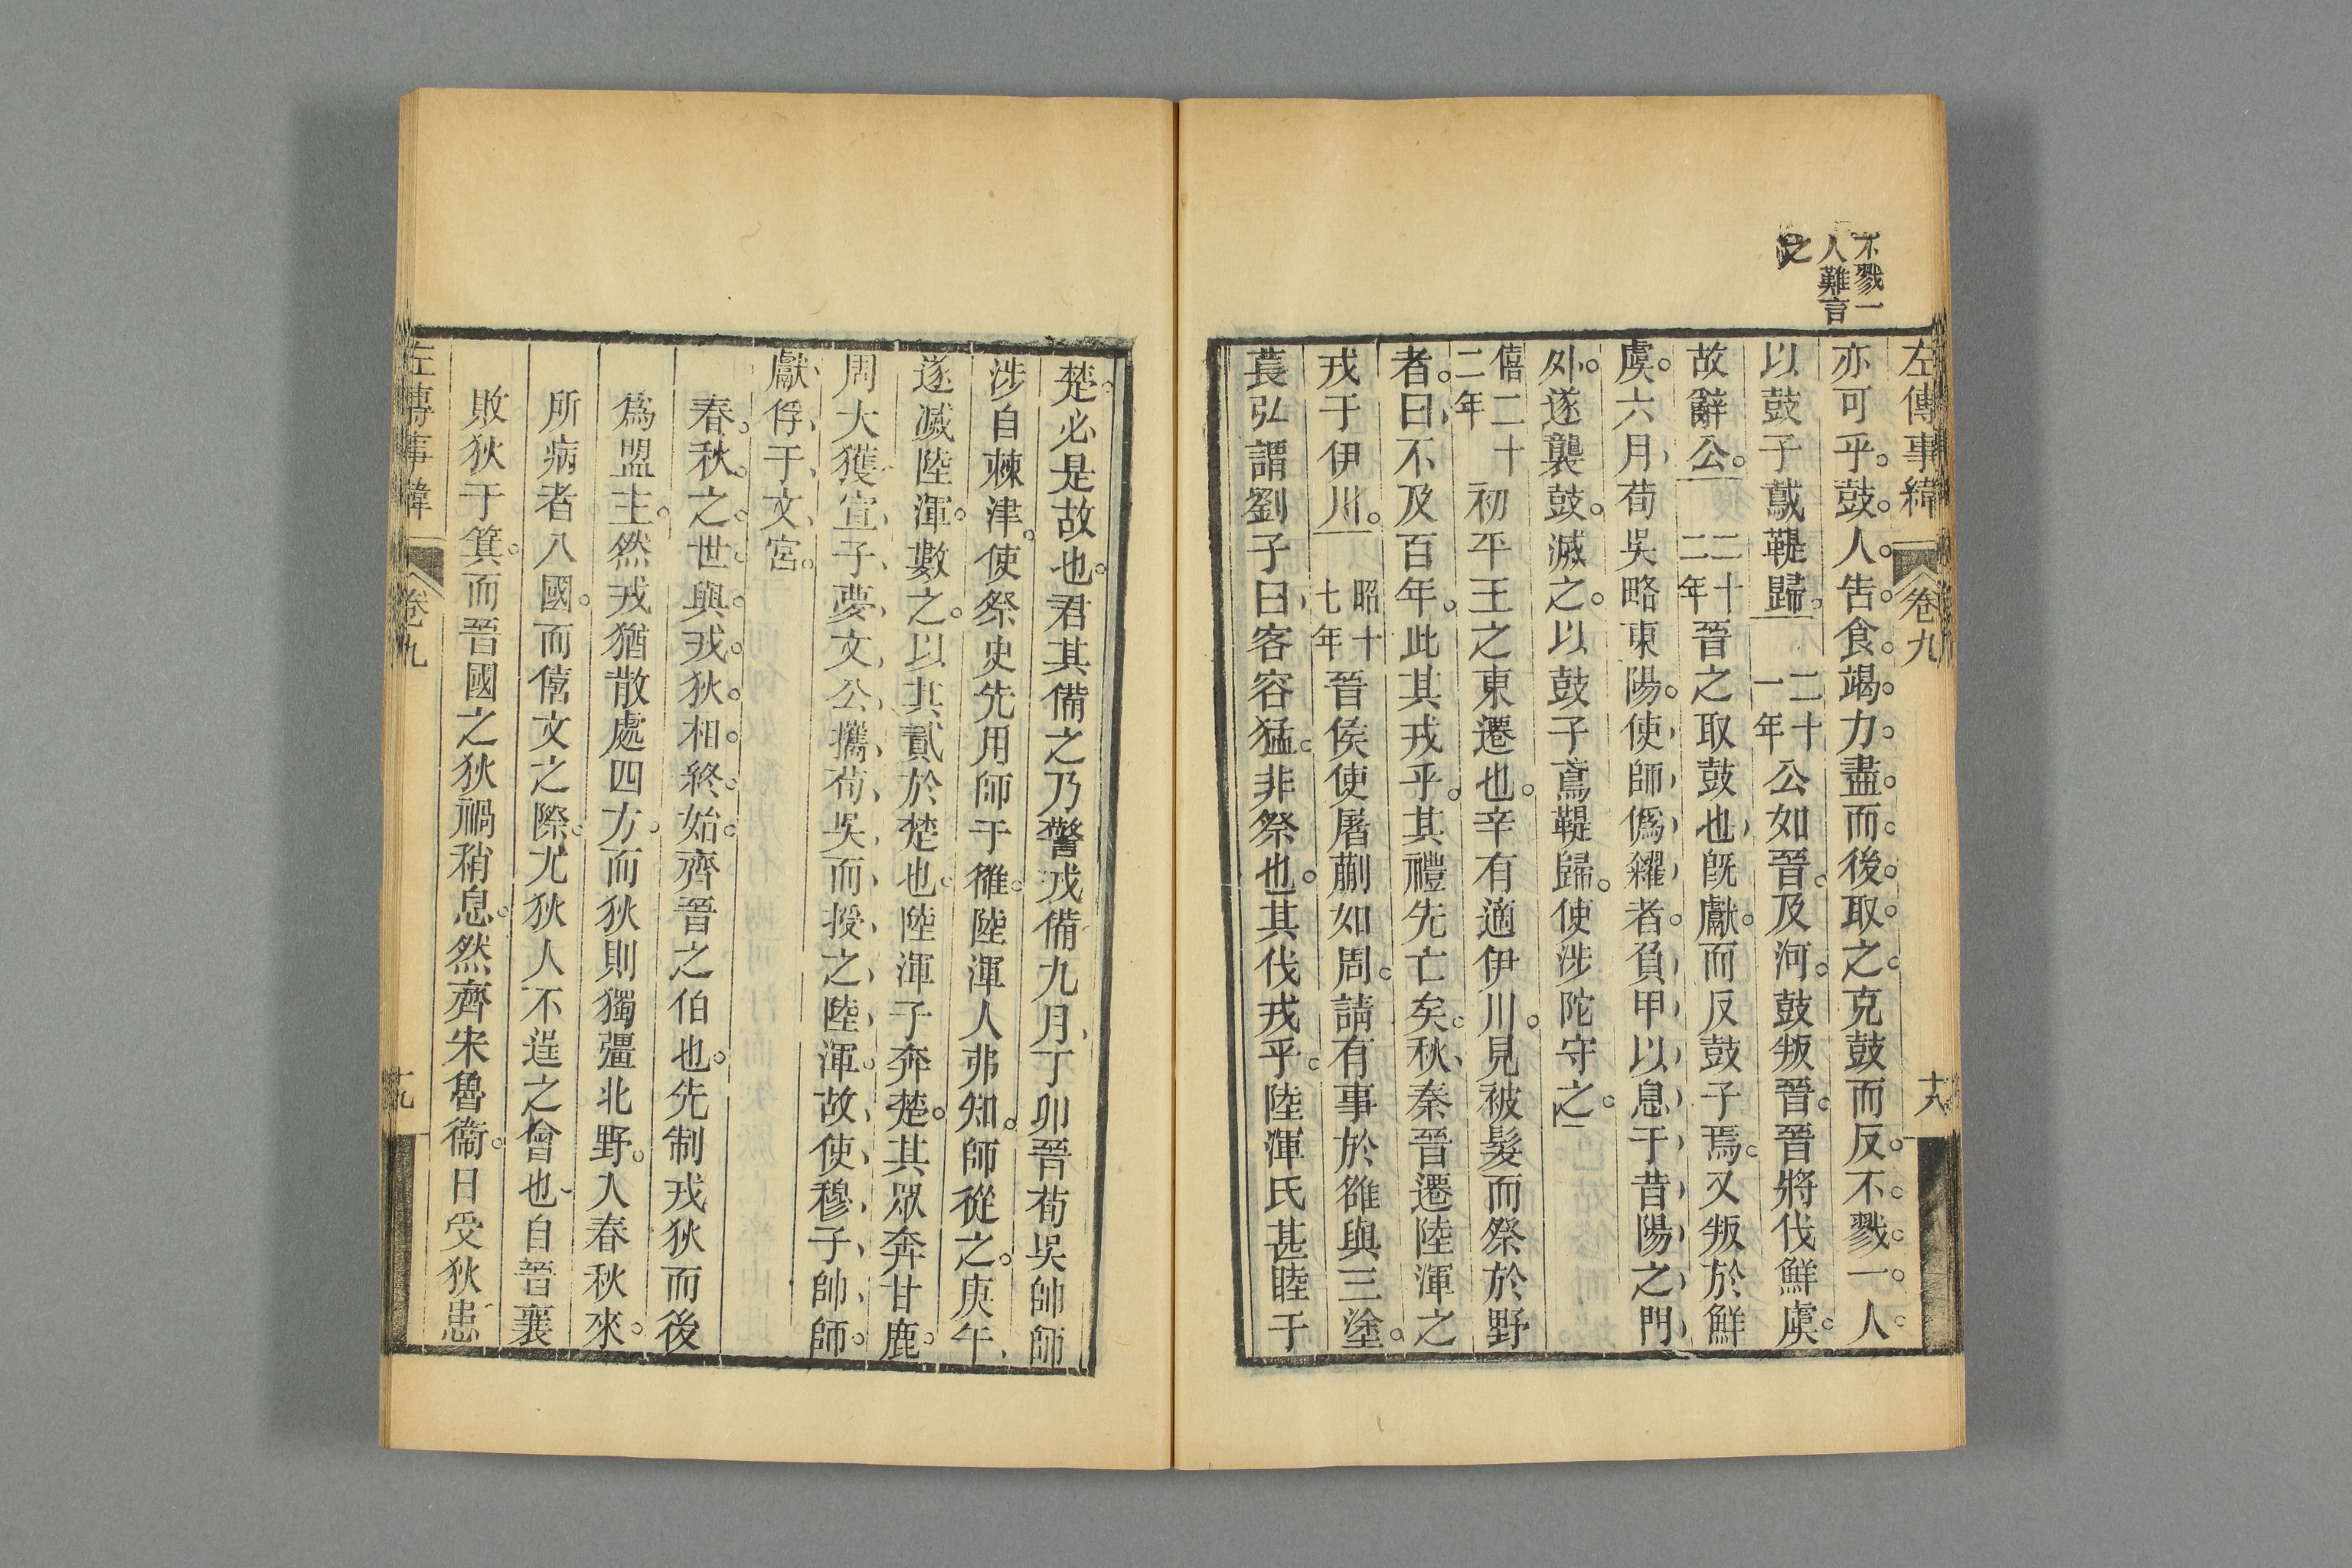 不戮一
人難言
之
左傳事緯 卷九 十八
亦可乎鼓人告食竭力盡而後取之克鼓而反不戮一人
以鼓子䳒鞮歸二十一年公如晉及河鼓叛晉晉將伐鮮虞
故辭公二十二年晉之取鼓也既獻而反鼓子焉又叛於鮮
虞六月荀吳略東陽使師僞糴者負甲以息于昔陽之門
外遂襲鼓滅之以鼓子鳶鞮歸使涉陀守之
僖二十二年初平王之東遷也辛有適伊川見被髮而祭於野
者曰不及百年此其戎乎其禮先亡矣秋秦晉遷陸渾之
戎于伊川昭十七年晉侯使屠蒯如周請有事於雒與三塗
萇弘謂劉子曰客容猛非祭也其伐戎乎陸渾氏甚睦于
楚必是故也君其備之乃警戎備九月丁卯晉荀吳帥師
涉自棘津使祭史先用師于雒陸渾人弗知師從之庚午
遂滅陸渾數之以其貳於楚也陸渾子奔楚其眾奔甘鹿
周大獲宣子夢文公攜荀吳而授之陸渾故使穆子帥師
獻俘于文宮
春秋之世與戎狄相終始齊晉之伯也先制戎狄而後
爲盟主然戎猶散處四方而狄則獨彊北野入春秋來
所病者八國而僖文之際尤狄人不逞之會也自晉襄
敗狄于箕而晉國之狄禍稍息然齊宋魯衞日受狄患
左傳事緯 卷九 十九